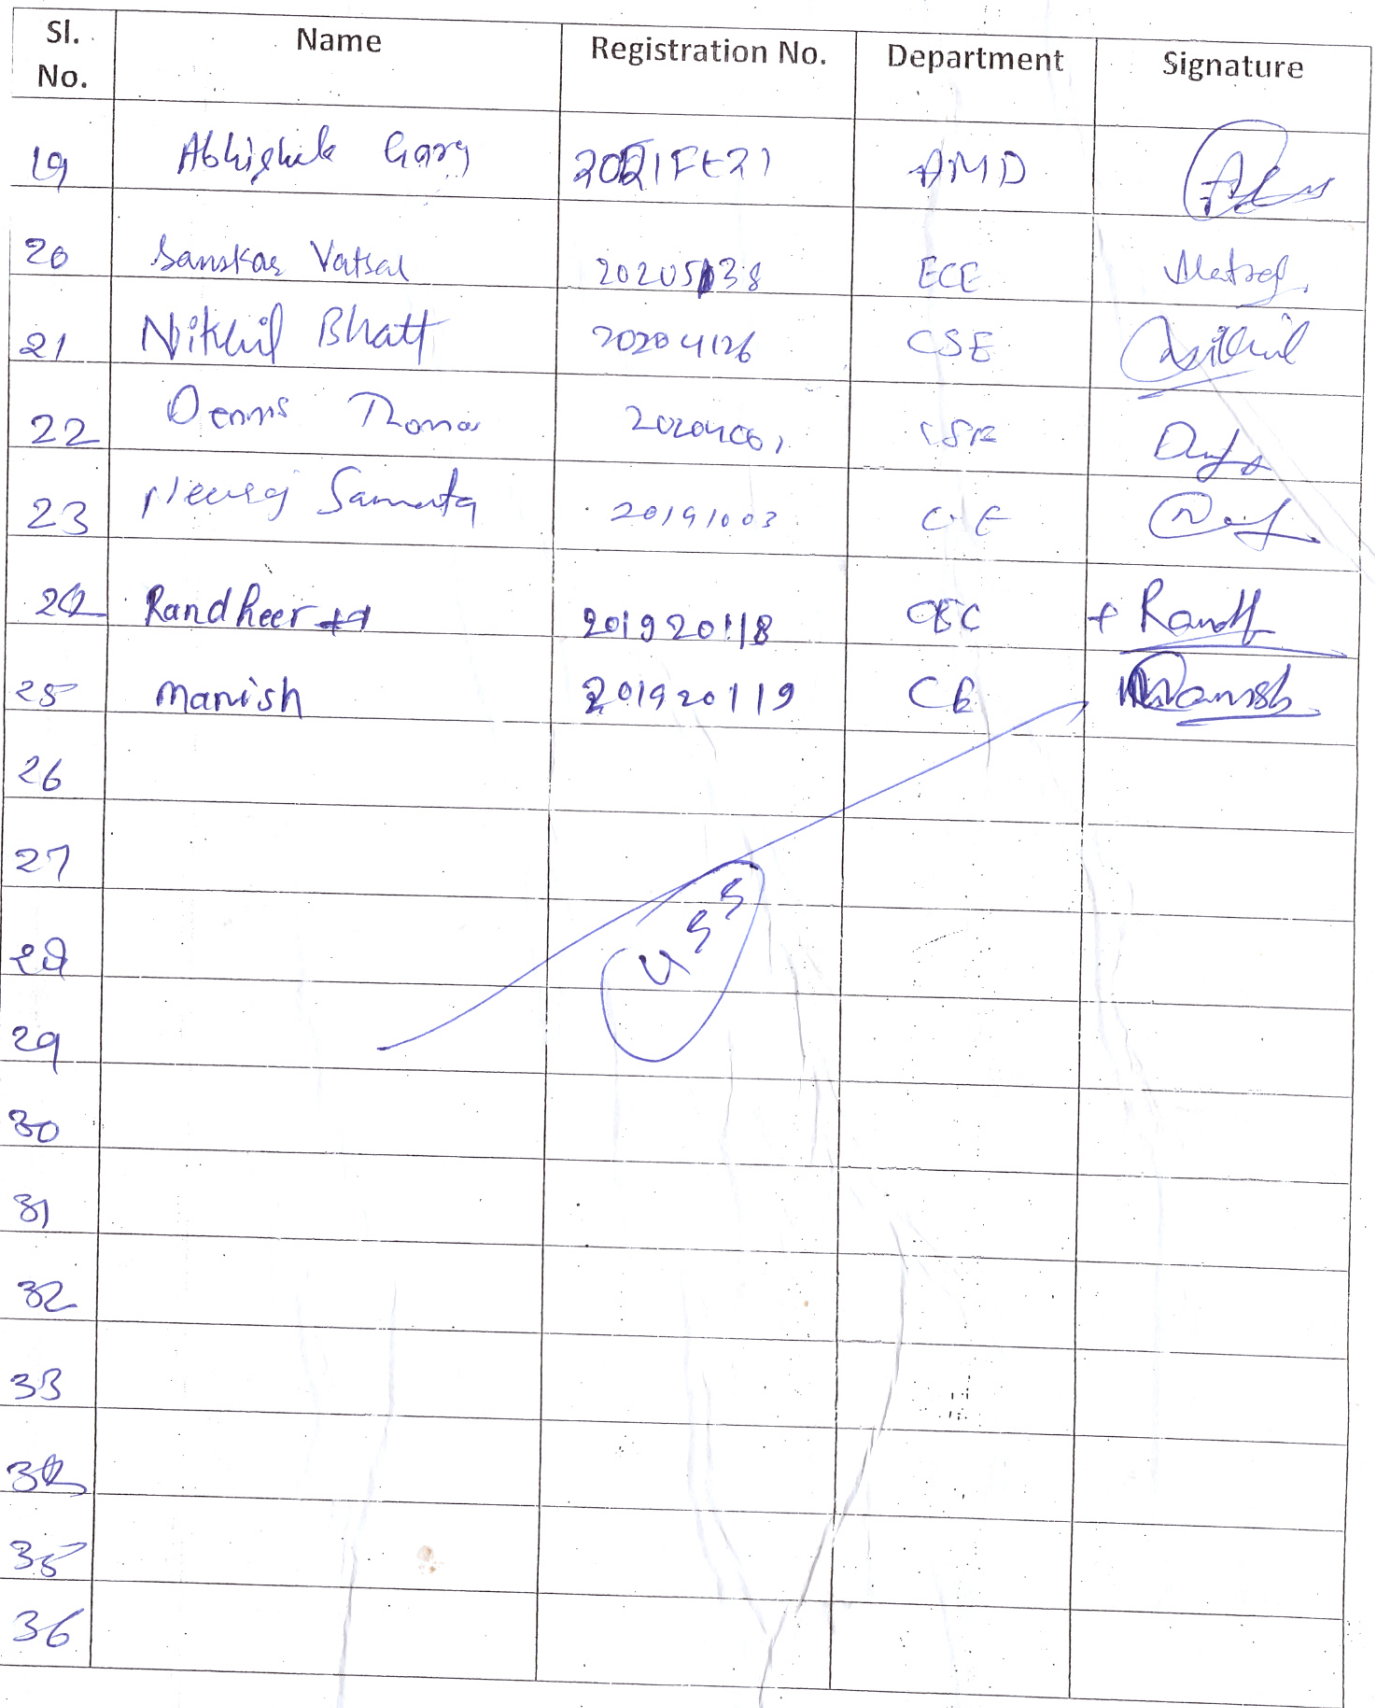 Sl. No. Name Registration No. Department Signature
19 Abhishek Garg 2021FE21 AMD
20 Sanskar Vatsal 20205138 ECE
21 Nikhil Bhatt 20204126 CSE Nikhil
22 Dennis Thomas 20204061 CSE
23 Neeraj Samanta 20191003 CE
24 Randheer 201920118 Randh
25 Manish 201920119 CE Manish
26
27
28
29
30
31
32
33
34
35
36